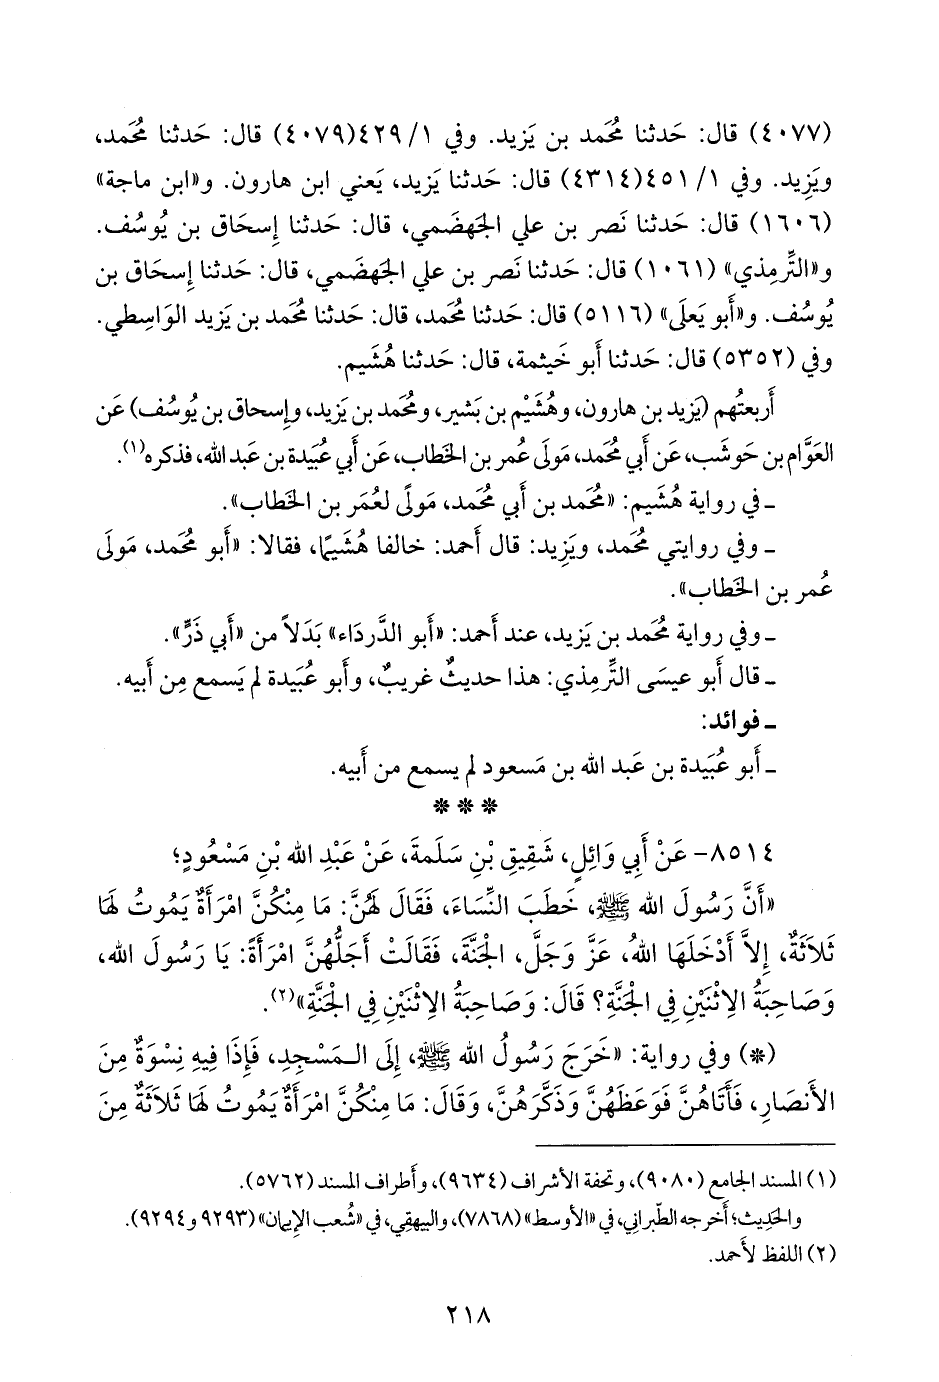 (٤٠٧٧) قال: حَدثنا مُحَمد بن يَزيد. وفي ١/ ٤٢٩(٤٠٧٩) قال: حَدثنا مُحَمد،
ويَزيد. وفي ١/ ٤٥١(٤٣١٤) قال: حَدثنا يَزيد، يَعني ابن هارون. و«ابن ماجة»
(١٦٠٦) قال: حَدثنا نَصر بن علي الجَهضَمي، قال: حَدثنا إِسحَاق بن يُوسُف.
و«التِّرمِذي» (١٠٦١) قال: حَدثنا نَصر بن علي الجَهضَمي، قال: حَدثنا إِسحَاق بن
يُوسُف. و«أَبو يَعلَى» (٥١١٦) قال: حَدثنا مُحَمد، قال: حَدثنا مُحَمد بن يَزيد الوَاسِطي.
وفي (٥٣٥٢) قال: حَدثنا أَبو خَيثمة، قال: حَدثنا هُشَيم.
أَربعتُهم (يَزيد بن هارون، وهُشَيْم بن بَشير، ومُحَمد بن يَزيد، وإِسحاق بن يُوسُف) عَن
العَوَّام بن حَوشَب، عَن أَبي مُحَمد، مَولَى عُمر بن الخَطاب، عَن أَبي عُبَيدة بن عَبد الله، فذكره(١).
ـ في رواية هُشَيم: «مُحَمد بن أَبي مُحَمد، مَولًى لعُمَر بن الخَطاب».
ـ وفي روايتي مُحَمد، ويَزِيد: قال أَحمد: خالفا هُشَيمًا، فقالا: «أَبو مُحَمد، مَولَى
عُمر بن الخَطاب».
ـ وفي رواية مُحَمد بن يَزيد، عند أَحمد: «أَبو الدَّردَاء» بَدَلاً من «أَبي ذَرٍّ».
ـ قال أَبو عيسَى التِّرمِذي: هذا حديثٌ غريبٌ، وأَبو عُبَيدة لم يَسمع مِن أَبيه.
ـ فوائد:
ـ أَبو عُبَيدة بن عَبد الله بن مَسعود لم يسمع من أَبيه.
***
٨٥١٤- عَنْ أَبِي وَائِلٍ، شَقِيقِ بْنِ سَلَمَةَ، عَنْ عَبْدِ الله بْنِ مَسْعُودٍ؛
«أَنَّ رَسُولَ الله ﷺ، خَطَبَ النِّسَاءَ، فَقَالَ لَهُنَّ: مَا مِنْكُنَّ امْرَأَةٌ يَمُوتُ لَهَا
ثَلاَثَةٌ، إِلاَّ أَدْخَلَهَا اللهُ، عَزَّ وَجَلَّ، الجَنَّةَ، فَقَالَتْ أَجَلُّهُنَّ امْرَأَةً: يَا رَسُولَ الله،
وَصَاحِبَةُ الِاثْنَيْنِ فِي الْجَنَّةِ؟ قَالَ: وَصَاحِبَةُ الِاثْنَيْنِ فِي الْجَنَّةِ»(٢).
(*) وفي رواية: «خَرَجَ رَسُولُ الله ﷺ، إِلَى الـمَسْجِدِ، فَإِذَا فِيهِ نِسْوَةٌ مِنَ
الأَنصَارِ، فَأَتَاهُنَّ فَوَعَظَهُنَّ وَذَكَّرَهُنَّ، وَقَالَ: مَا مِنْكُنَّ امْرَأَةٌ يَمُوتُ لَهَا ثَلاَثَةٌ مِنَ
(١) المسند الجامع (٩٠٨٠)، وتحفة الأشراف (٩٦٣٤)، وأَطراف المسند (٥٧٦٢).
والحَدِيث؛ أَخرجه الطَّبراني، في «الأوسط» (٧٨٦٨)، والبيهقي، في «شُعب الإيمان» (٩٢٩٣ و٩٢٩٤).
(٢) اللفظ لأَحمد.
٢١٨